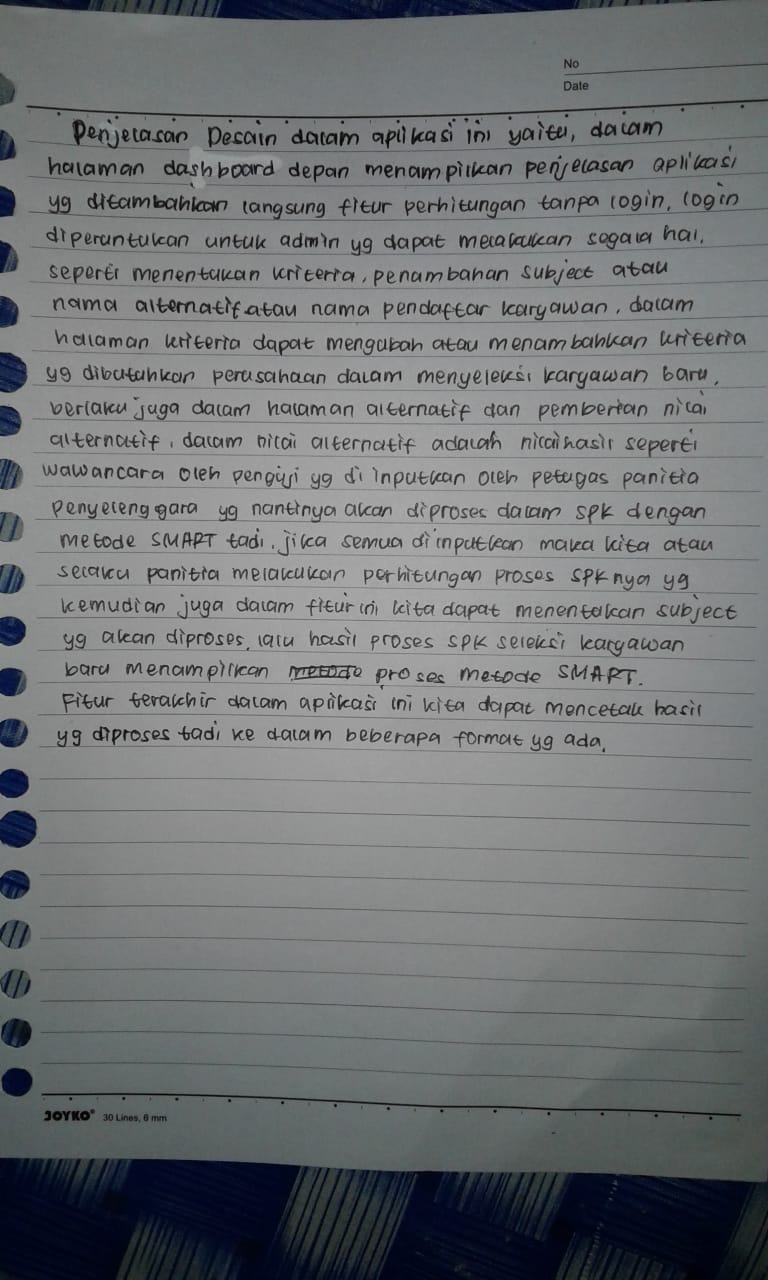 No
Date
Penjelasan Desain dalam aplikasi ini yaitu, dalam
halaman dashboard depan menampilkan penjelasan aplikasi
yg ditambahkan langsung fitur perhitungan tanpa login, login
diperuntukan untuk admin yg dapat melakukan segala hal,
seperti menentukan kriteria, penambahan subject atau
nama alternatif atau nama pendaftar karyawan, dalam
halaman kriteria dapat mengubah atau menambahkan kriteria
yg dibutuhkan perusahaan dalam menyeleksi karyawan baru,
berlaku juga dalam halaman alternatif dan pemberian nilai
alternatif, dalam nilai alternatif adalah nilai hasil seperti
wawancara oleh penguji yg di inputkan oleh petugas panitia
penyelenggara yg nantinya akan diproses dalam SPK dengan
metode SMART tadi, jika semua di inputkan maka kita atau
selaku panitia melakukan perhitungan proses SPK nya yg
kemudian juga dalam fitur ini kita dapat menentukan subject
yg akan diproses, lalu hasil proses SPK seleksi karyawan
baru menampilkan metode proses metode SMART.
Fitur terakhir dalam aplikasi ini kita dapat mencetak hasil
yg diproses tadi ke dalam beberapa format yg ada.
JOYKO® 30 Lines, 6 mm